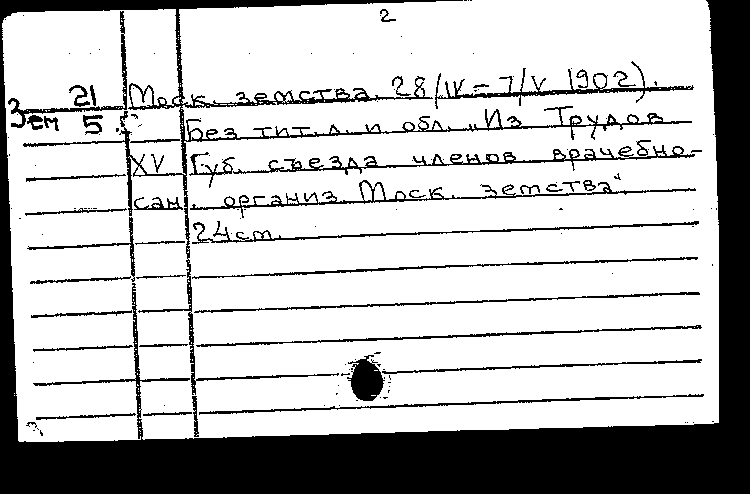 2
21 Моск. земства. 28/IV – 7/V 1902).
Зем 5 Без тит. л. и обл. „Из Трудов
XV Губ. съезда членов врачебно-
сан. организ. Моск. земства“.
24 cm.